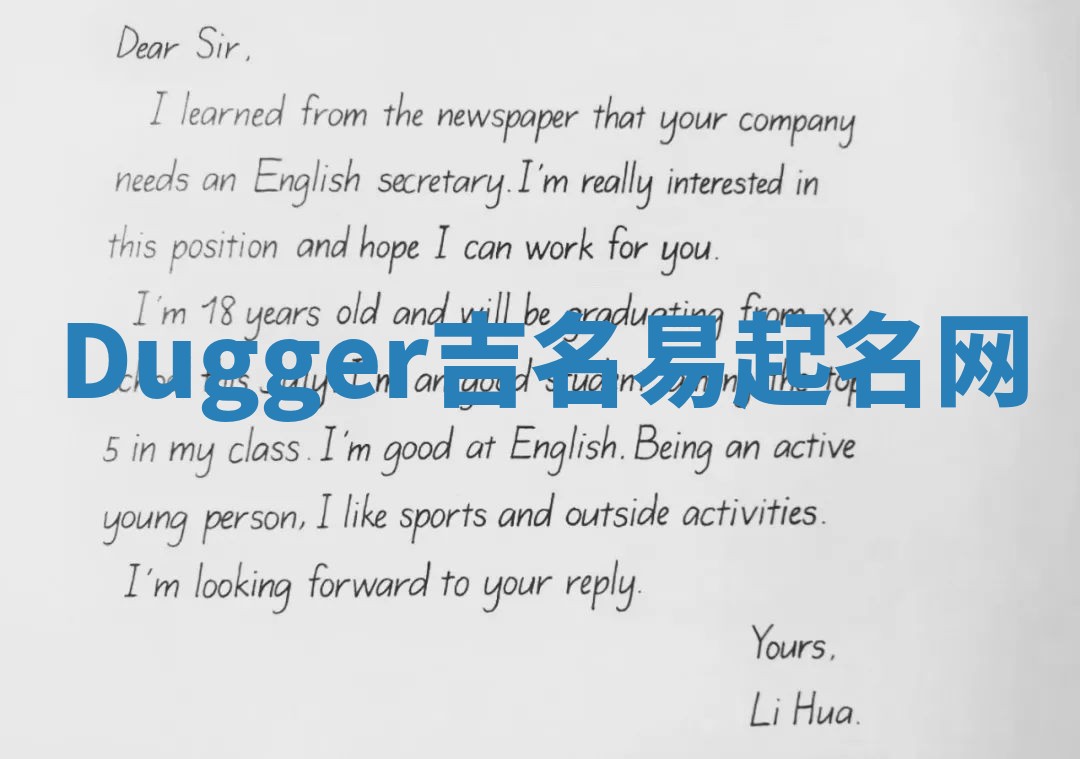 Dear Sir,
I learned from the newspaper that your company
needs an English secretary. I'm really interested in
this position and hope I can work for you.
I'm 18 years old and will be graduating from xx
Dugger吉名易起名网
this July. I'm an good student among the top
5 in my class. I'm good at English. Being an active
young person, I like sports and outside activities.
I'm looking forward to your reply.
Yours,
Li Hua.